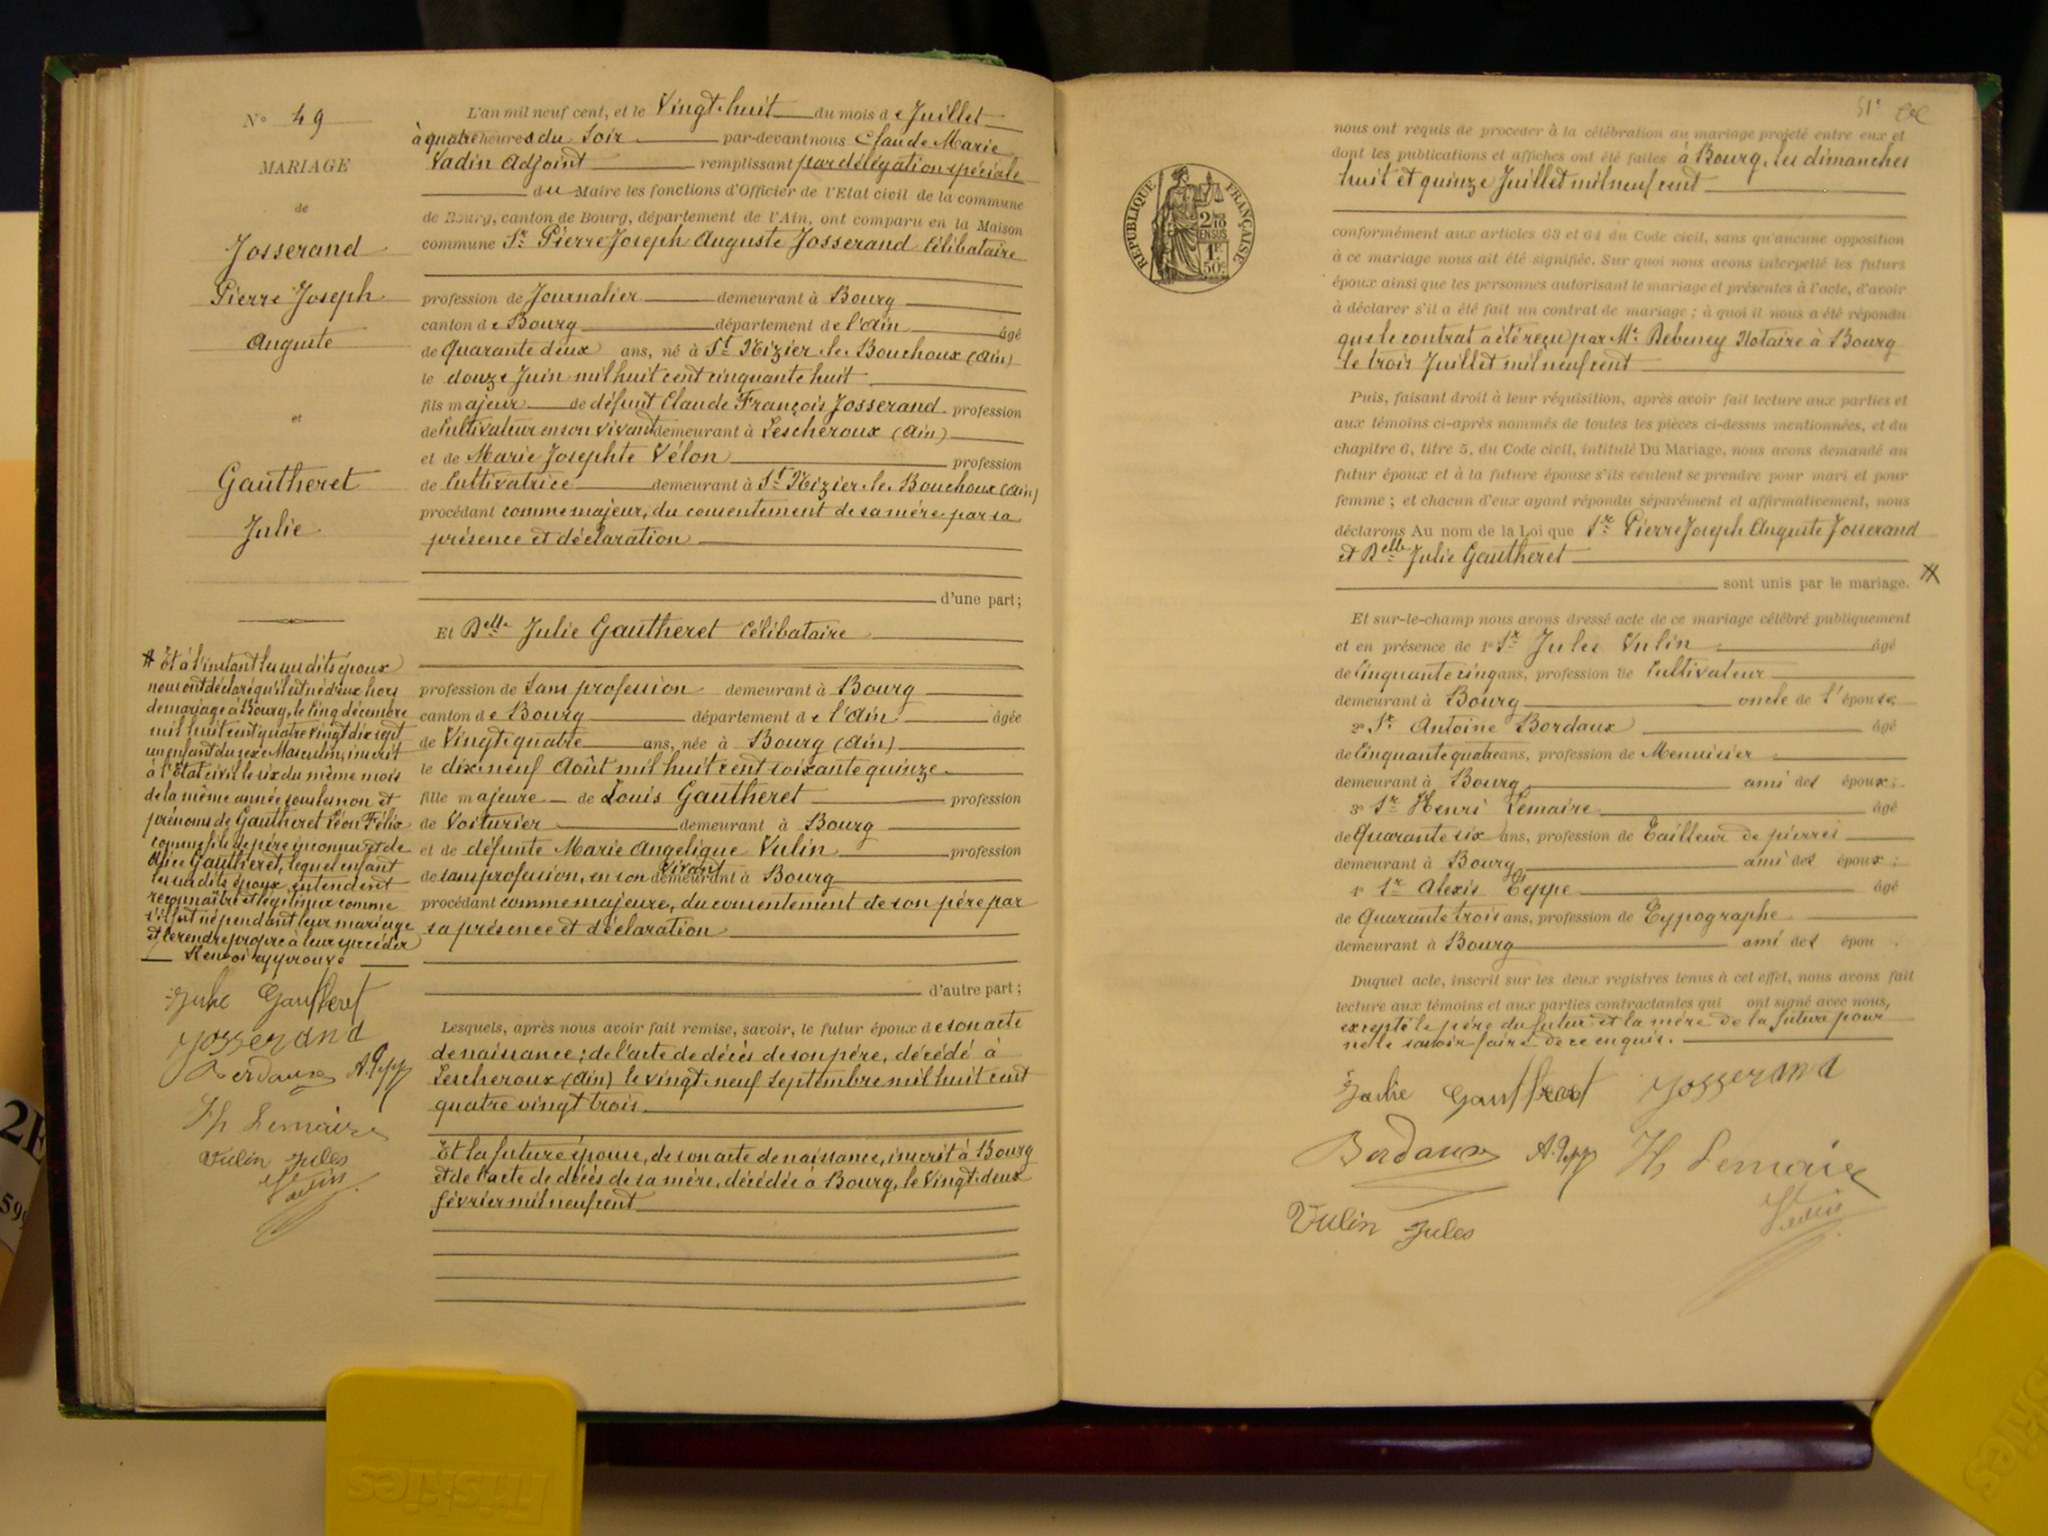 N° 49
MARIAGE
de
Josserand
Pierre Joseph
Auguste
et
Gautheret
Julie
# Et à l'instant les susdits époux
nous ont déclaré qu'il est né d'eux hors
de mariage à Bourg, le cinq décembre
mil huit cent quatre vingt dix sept
un enfant du sexe Masculin, inscrit
à l'Etat civil le six du même mois
de la même année sous les nom et
prénoms de Gautheret Léon Félix
comme fils de père inconnu et de
Gautheret, lequel enfant
les susdits époux entendent
reconnaître et légitimer comme
s'il est né pendant leur mariage
et le rendre propre à leur succéder
Renvoi approuvé
Julie Gautheret
Josserand
Bordaux A. Pepp
Hy Lemaire
Vulin Jules
Vadin
L'an mil neuf cent, et le Vingt-huit du mois de Juillet
à quatre heures du Soir par-devant nous Claude Marie
Vadin Adjoint remplissant par délégation spéciale
du Maire les fonctions d'Officier de l'Etat civil de la commune
de Bourg, canton de Bourg, département de l'Ain, ont comparu en la Maison
commune Sr Pierre Joseph Auguste Josserand Célibataire
profession de Journalier demeurant à Bourg
canton de Bourg département de l'Ain âgé
de Quarante deux ans, né à St Nizier le Bouchoux (Ain)
le douze Juin mil huit cent cinquante huit
fils majeur de défunt Claude François Josserand profession
de Cultivateur en son vivant demeurant à Lescheroux (Ain)
et de Marie Josephte Vélon profession
de Cultivatrice demeurant à St Nizier le Bouchoux (Ain)
procédant comme majeur, du consentement de sa mère par sa
présence et déclaration
d'une part;
Et Delle Julie Gautheret Célibataire
profession de Sans profession demeurant à Bourg
canton de Bourg département de l'Ain âgée
de Vingt quatre ans, née à Bourg (Ain)
le dix neuf Août mil huit cent soixante quinze
fille majeure de Louis Gautheret profession
de Voiturier demeurant à Bourg
et de défunte Marie Angelique Vulin profession
de sans profession, en son vivant demeurant à Bourg
procédant comme majeure, du consentement de son père par
sa présence et déclaration
d'autre part;
Lesquels, après nous avoir fait remise, savoir, le futur époux de son acte
de naissance; de l'acte de décès de son père, décédé à
Lescheroux (Ain) le vingt-neuf Septembre mil huit cent
quatre vingt trois
Et la future épouse, de son acte de naissance, inscrit à Bourg
et de l'acte de décès de sa mère, décédée à Bourg, le Vingt-deux
février mil neuf cent
51e
RÉPUBLIQUE FRANÇAISE
2/10
EN SUS
1F
50c
nous ont requis de procéder à la célébration du mariage projeté entre eux et
dont les publications et affiches ont été faites à Bourg, les dimanches
huit et quinze Juillet mil neuf cent
conformément aux articles 63 et 64 du Code civil, sans qu'aucune opposition
à ce mariage nous ait été signifiée. Sur quoi nous avons interpellé les futurs
époux ainsi que les personnes autorisant le mariage et présentes à l'acte, d'avoir
à déclarer s'il a été fait un contrat de mariage; à quoi il nous a été répondu
que le contrat a été reçu par Me Debeney Notaire à Bourg
le trois Juillet mil neuf cent
Puis, faisant droit à leur réquisition, après avoir fait lecture aux parties et
aux témoins ci-après nommés de toutes les pièces ci-dessus mentionnées, et du
chapitre 6, titre 5, du Code civil, intitulé Du Mariage, nous avons demandé au
futur époux et à la future épouse s'ils veulent se prendre pour mari et pour
femme; et chacun d'eux ayant répondu séparément et affirmativement, nous
déclarons Au nom de la Loi que Sr Pierre Joseph Auguste Josserand
et Delle Julie Gautheret
sont unis par le mariage. #
Et sur-le-champ nous avons dressé acte de ce mariage célébré publiquement
et en présence de 1° Sr Jules Vulin âgé
de Cinquante cinq ans, profession de Cultivateur
demeurant à Bourg oncle de l'épouse
2° Sr Antoine Bordaux âgé
de Cinquante quatre ans, profession de Menuisier
demeurant à Bourg ami des époux;
3° Sr Henri Lemaire âgé
de Quarante six ans, profession de Tailleur de pierres
demeurant à Bourg ami des époux;
4° Sr Alexis Peppe âgé
de Quarante trois ans, profession de Typographe
demeurant à Bourg ami des épou .
Duquel acte, inscrit sur les deux registres tenus à cet effet, nous avons fait
lecture aux témoins et aux parties contractantes qui ont signé avec nous,
excepté le père du futur et la mère de la future pour
ne le savoir faire de ce enquis.
Julie Gautheret Josserand
Bordaux A. Pepp Hy Lemaire
Vulin Jules Vadin
2E
59
Triskies